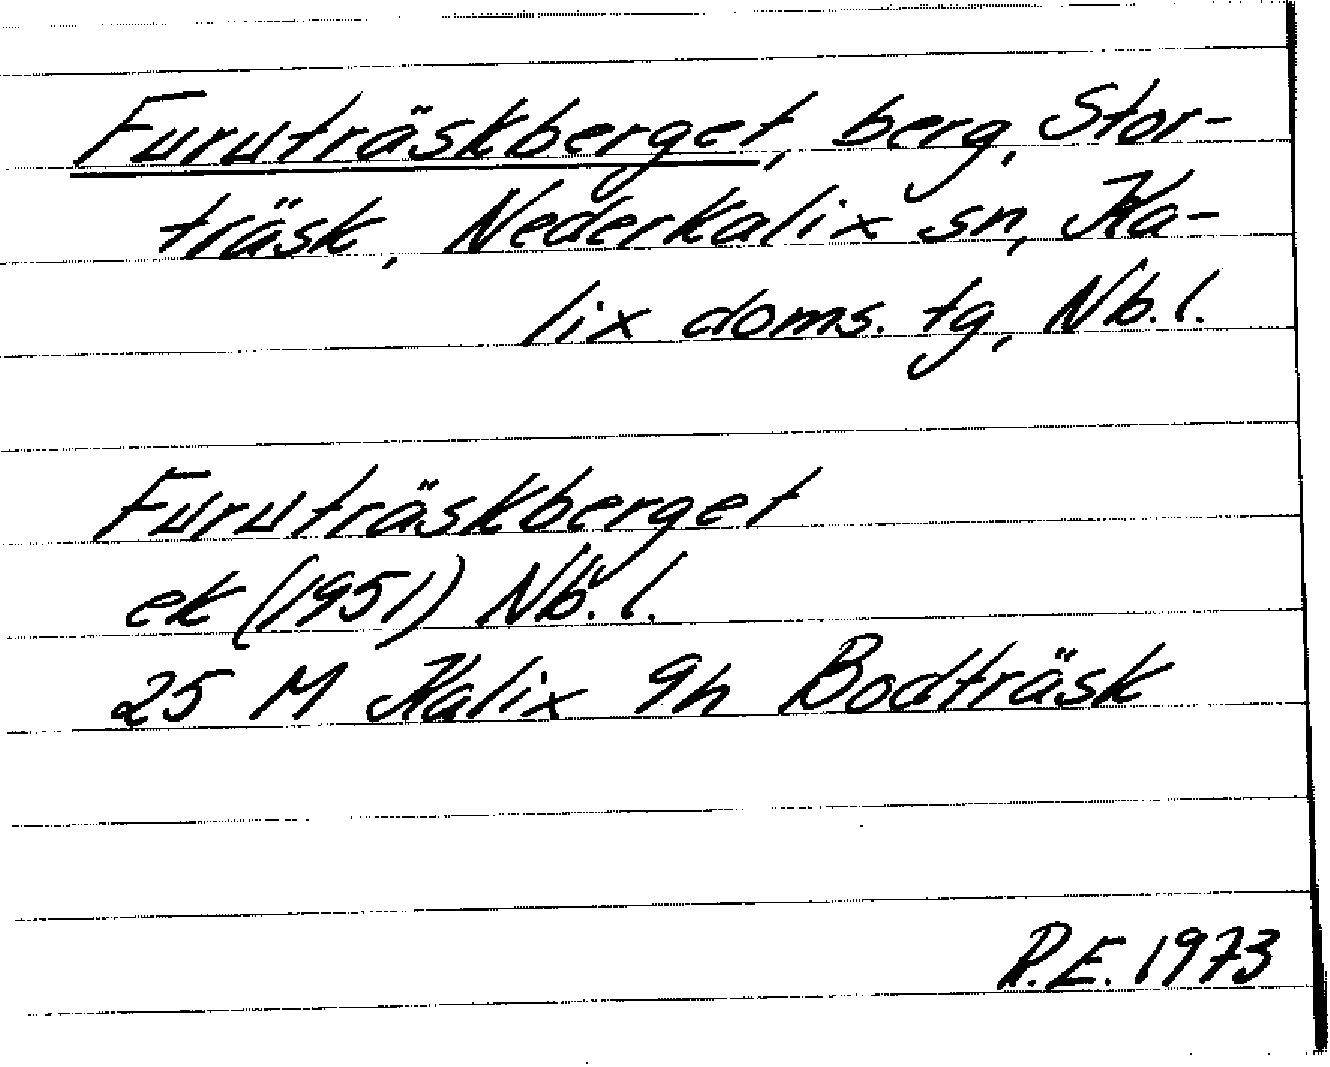 Furuträskberget, berg, Stor-
träsk, Nederkalix sn, Ka-
lix doms. tg, Nb. l.
Furuträskberget
ek (1951) Nb. l.
25 M Kalix 9h Bodträsk
R.E. 1973